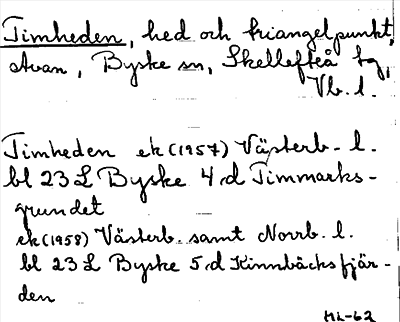 Timheden, hed och triangelpunkt,
Avan, Byske sn, Skellefteå tg,
Vb. l.
Timheden ek (1957) Västerb. l.
bl 23 L Byske 4 d Timmarks-
grundet
ek (1958) Västerb. samt Norrb. l.
bl 23 L Byske 5 d Kinnbäcksfjär-
den
HL-62